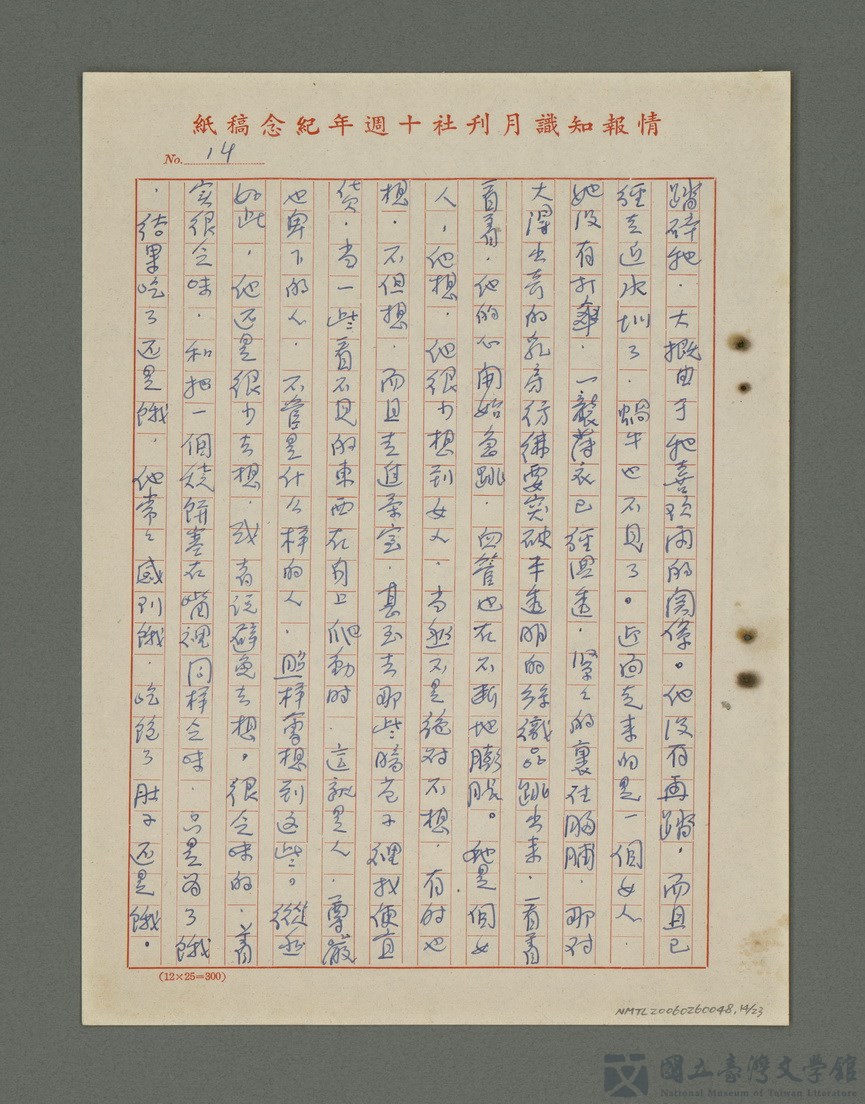 情報知識月刊社十週年紀念稿紙
No. 14
踏碎牠．大概由于牠喜歡雨的関係。他没有再踏，而且已
經走近水圳了．蝸牛也不見了。迎面走来的是一個女人．
她没有打傘．一襲薄衣已經濕透．緊々的裹在胸脯．那对
大得出奇的乳房彷彿要突破半透明的絲織品跳出来．看着
看着．他的心開始急跳．血管也在不断地膨脹。她是個女
人，他想．他很少想到女人．当然不是絶对不想．有的时也
想．不但想．而且走進茶室．甚至去那些暗巷子裡找便宜
貨．当一些看不見的東西在身上爬動时．這就是人．尊嚴
也卑下的人．不管是什么样的人．照样會想到这些。縱然
如此，他还是很少去想．或者説避免去想，很乏味的．着
实很乏味．和把一個燒餅塞在嘴裡同样乏味．只是为了餓
．結果吃了还是餓．他常々感到餓．吃飽了肚子还是餓。
(12×25=300)
NMTL20060260048,14/23
國立臺灣文學館
National Museum of Taiwan Literature